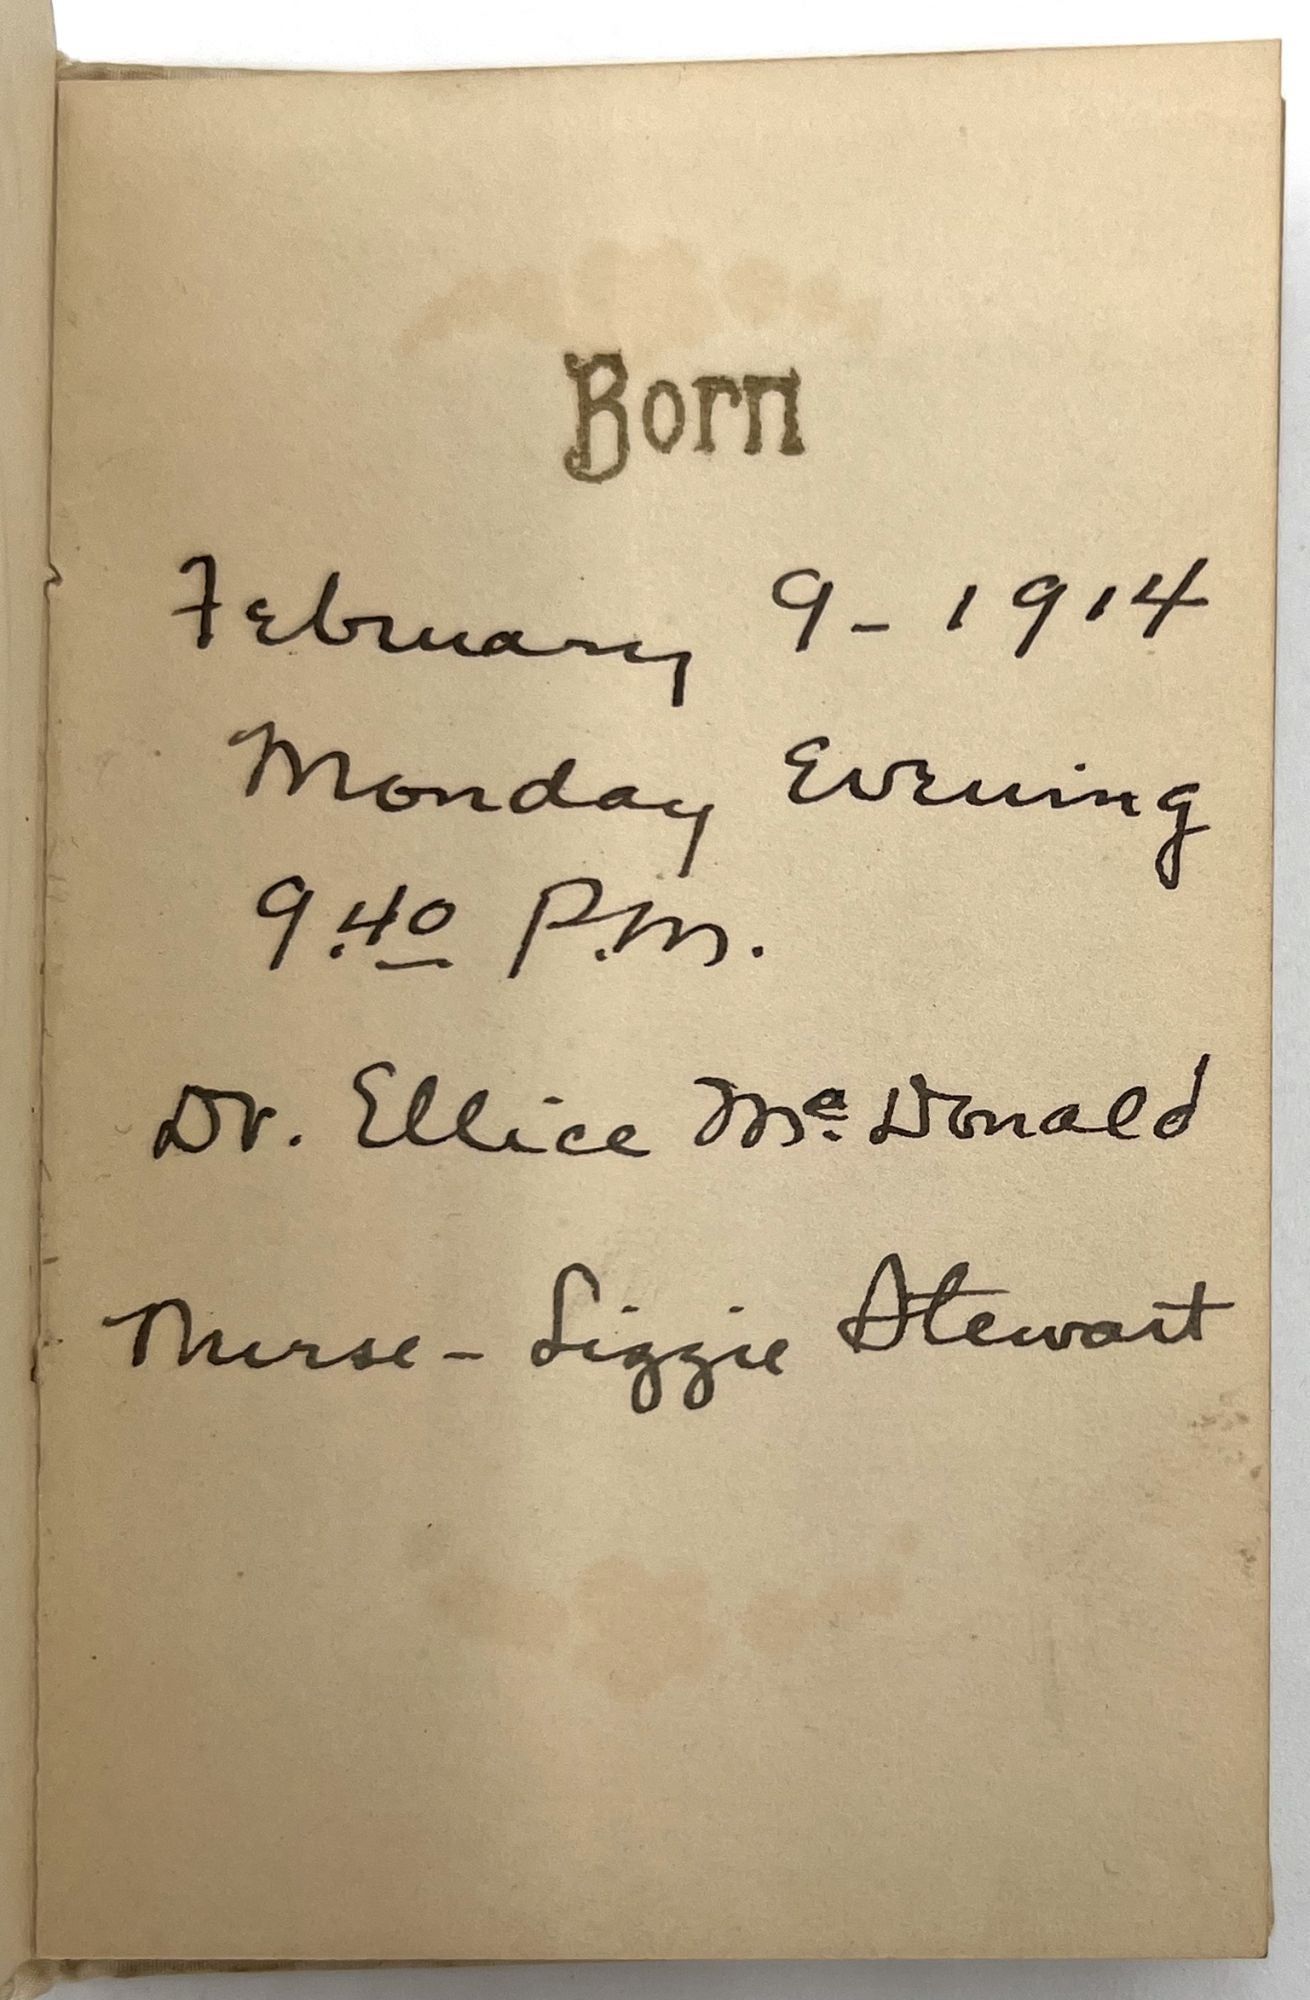 Born
February 9 - 1914
Monday Evening
9.40 P.M.
Dr. Ellice Mc. Donald
Nurse - Lizzie Stewart